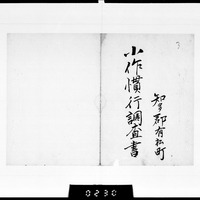 3
小作慣行調査書
知多郡有松町
0230